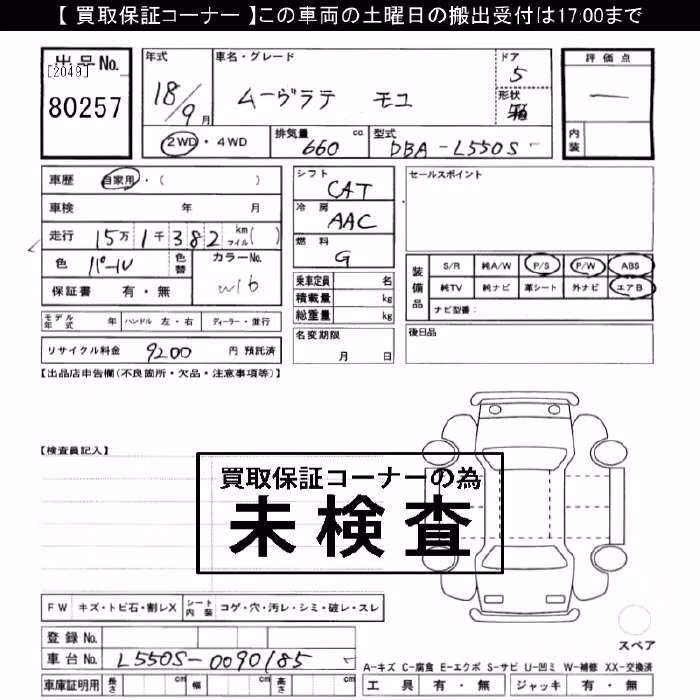 【 買取保証コーナー 】この車両の土曜日の搬出受付は17:00まで
出品No.
[2049]
80257
年式
18/9月
車名・グレード
ムーヴラテ モユ
ドア
5
形状
箱
評価点
一
内装
2WD・4WD
排気量 cc
660
型式
DBA-L550S-
車歴 自家用・( )
車検 年 月
走行 15万1千382 km マイル( )
色 パール 色替
カラーNo.
W16
保証書 有・無
モデル年式 年 ハンドル 左・右 ディーラー・並行
リサイクル料金 9200 円 預託済
シフト
CAT
冷房
AAC
燃料
G
乗車定員 名
積載量 kg
総重量 kg
名変期限
月 日
セールスポイント
装備品
S/R 純A/W P/S P/W ABS
純TV 純ナビ 革シート 外ナビ エアB
ナビ型番:
後日品
【出品店申告欄(不良箇所・欠品・注意事項等)】
【検査員記入】
買取保証コーナーの為
未検査
FW キズ・トビ石・割レX シート内装 コゲ・穴・汚レ・シミ・破レ・スレ
登録No.
車台No. L550S-0090185-
車庫証明用 長さ cm 幅 cm 高さ cm
スペア
A-キズ C-腐食 E-エクボ S-サビ U-凹ミ W-補修 XX-交換済
工具 有・無 ジャッキ 有・無